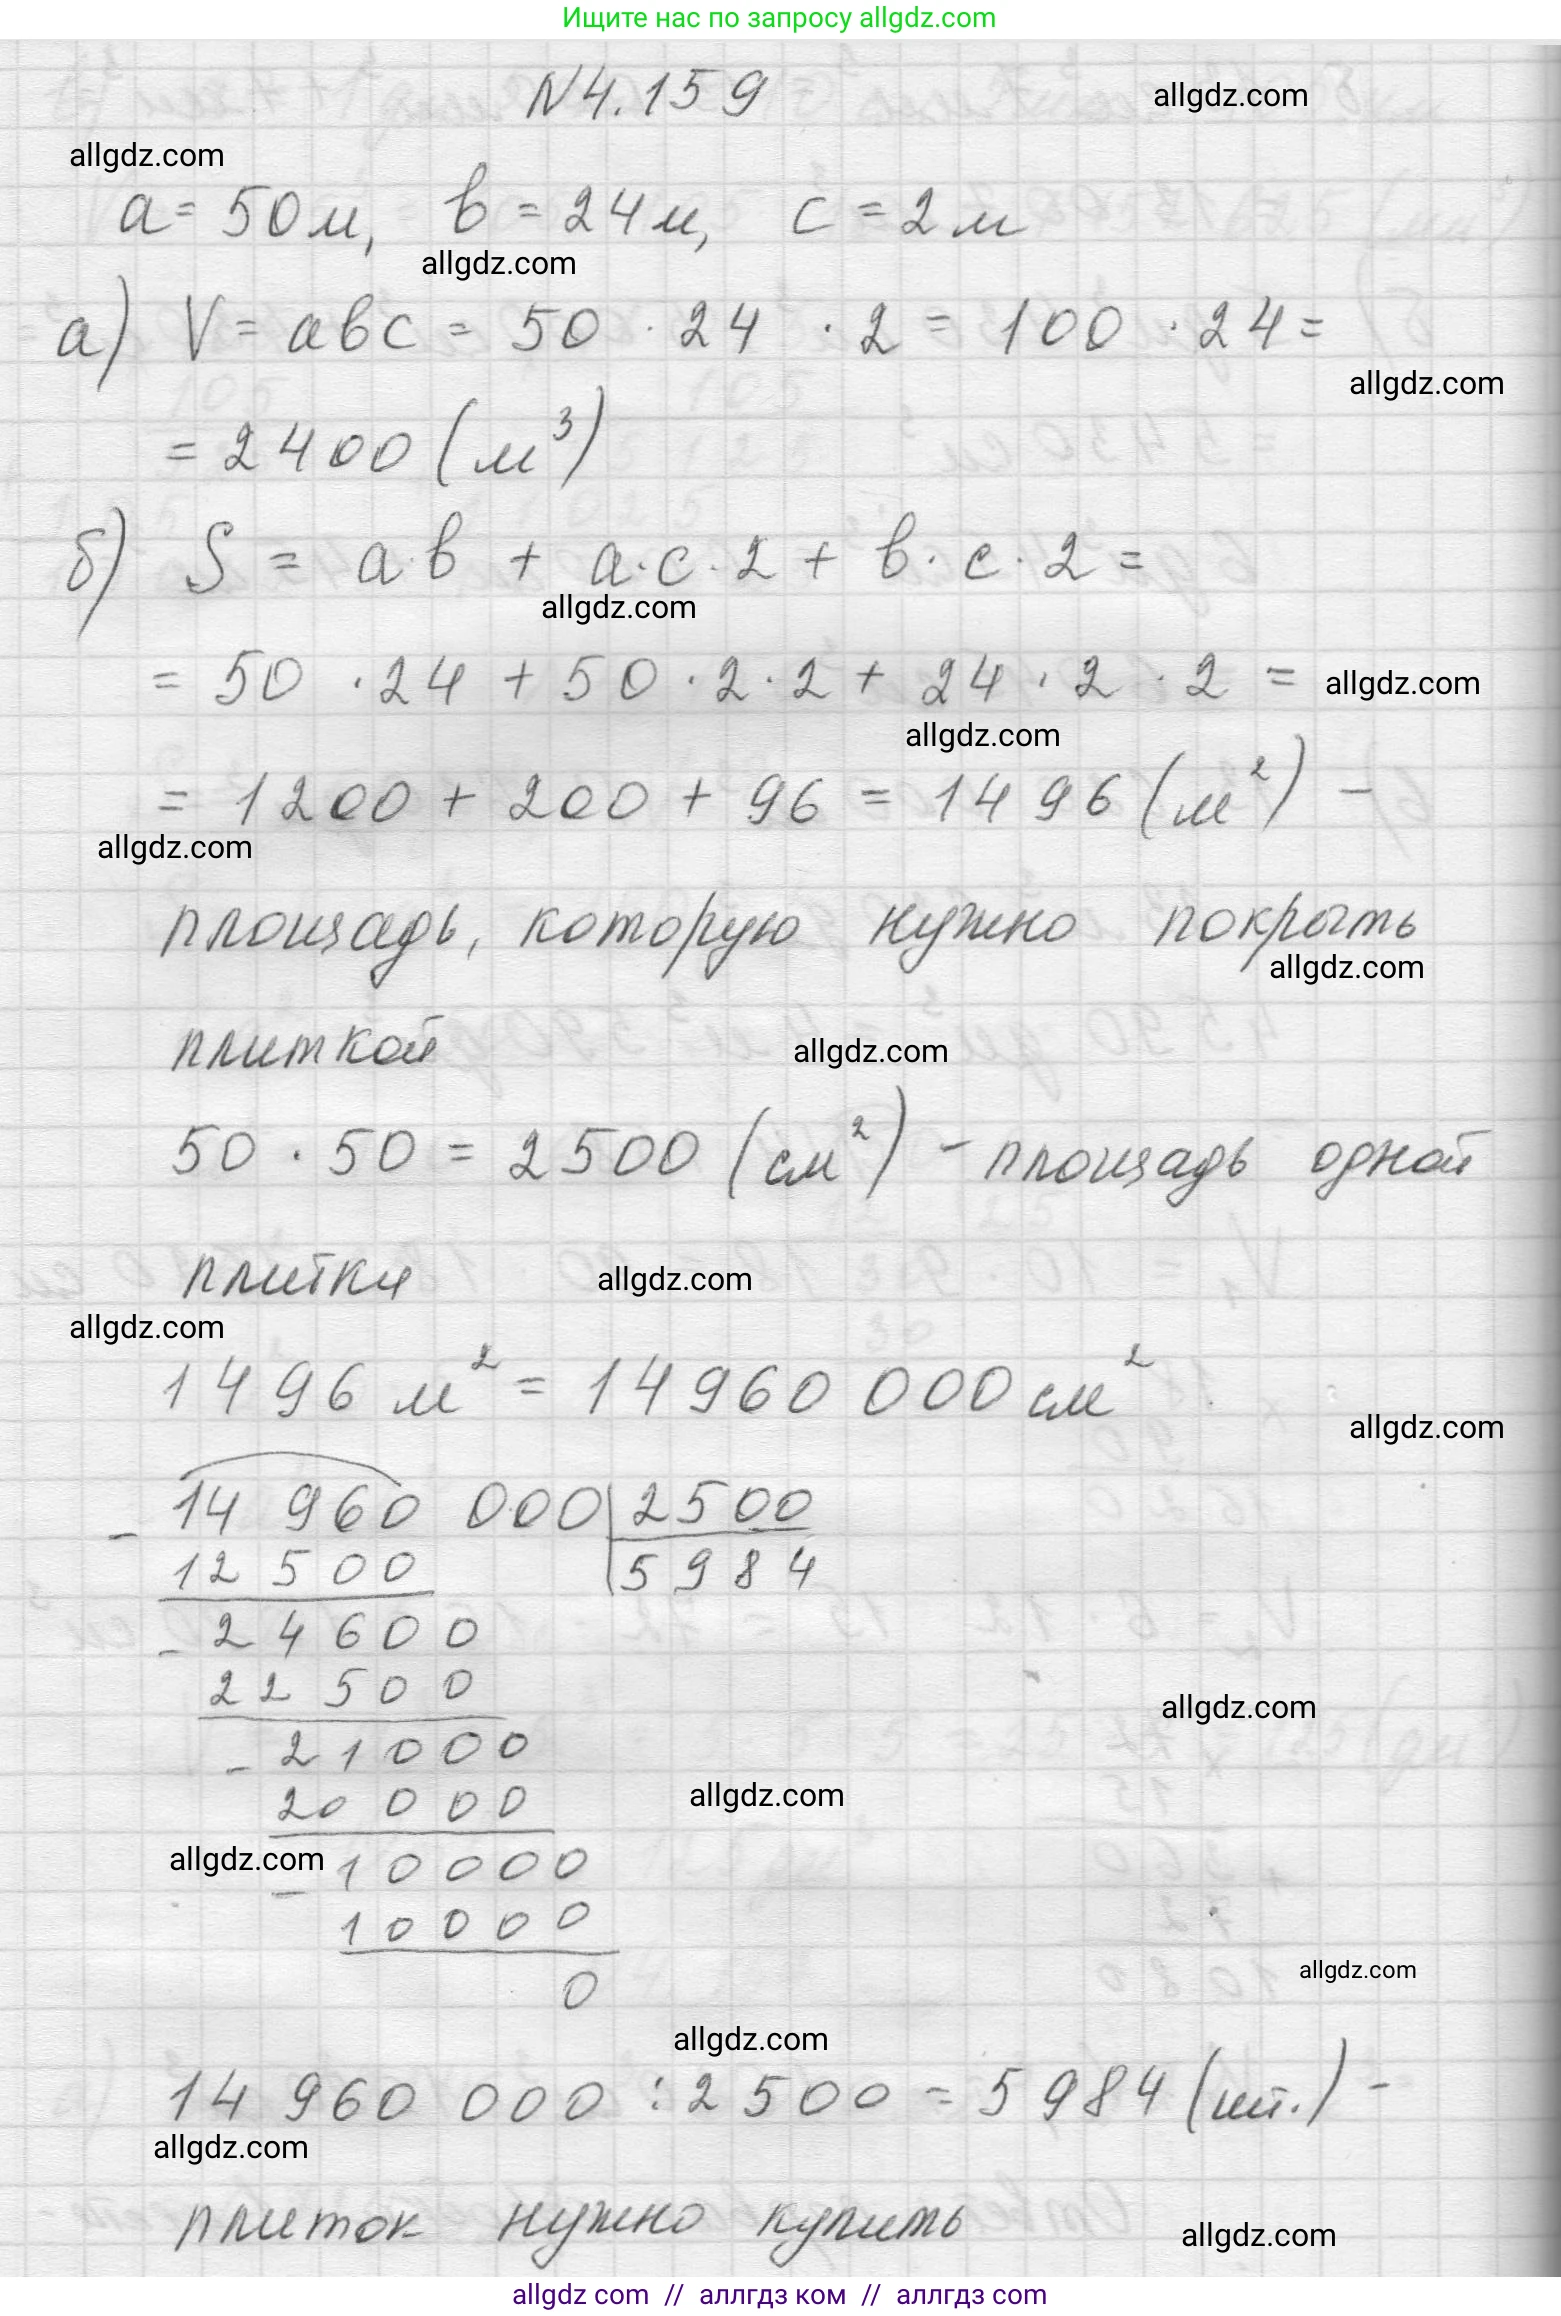 Ищите нас по запросу allgdz.com
N4.159
allgdz.com
allgdz.com
a = 50 м, b = 24 м, c = 2 м
allgdz.com
а) V = abc = 50 · 24 · 2 = 100 · 24 =
allgdz.com
= 2400 (м³)
б) S = a·b + a·c·2 + b·c·2 =
allgdz.com
= 50 · 24 + 50 · 2 · 2 + 24 · 2 · 2 =
allgdz.com
allgdz.com
= 1200 + 200 + 96 = 1496 (м²) –
allgdz.com
площадь, которую нужно покрыть
allgdz.com
плиткой
allgdz.com
50 · 50 = 2500 (см²) – площадь одной
плитки
allgdz.com
allgdz.com
1496 м² = 14960 000 см²
allgdz.com
– 14 960 000 | 2500
12 500 | 5984
– 24600
22500
allgdz.com
– 21000
20000
allgdz.com
allgdz.com
– 10000
10000
allgdz.com
0
allgdz.com
14 960 000 : 2500 = 5984 (шт.) –
allgdz.com
плиток нужно купить
allgdz.com
allgdz com // аллгдз ком // аллгдз com